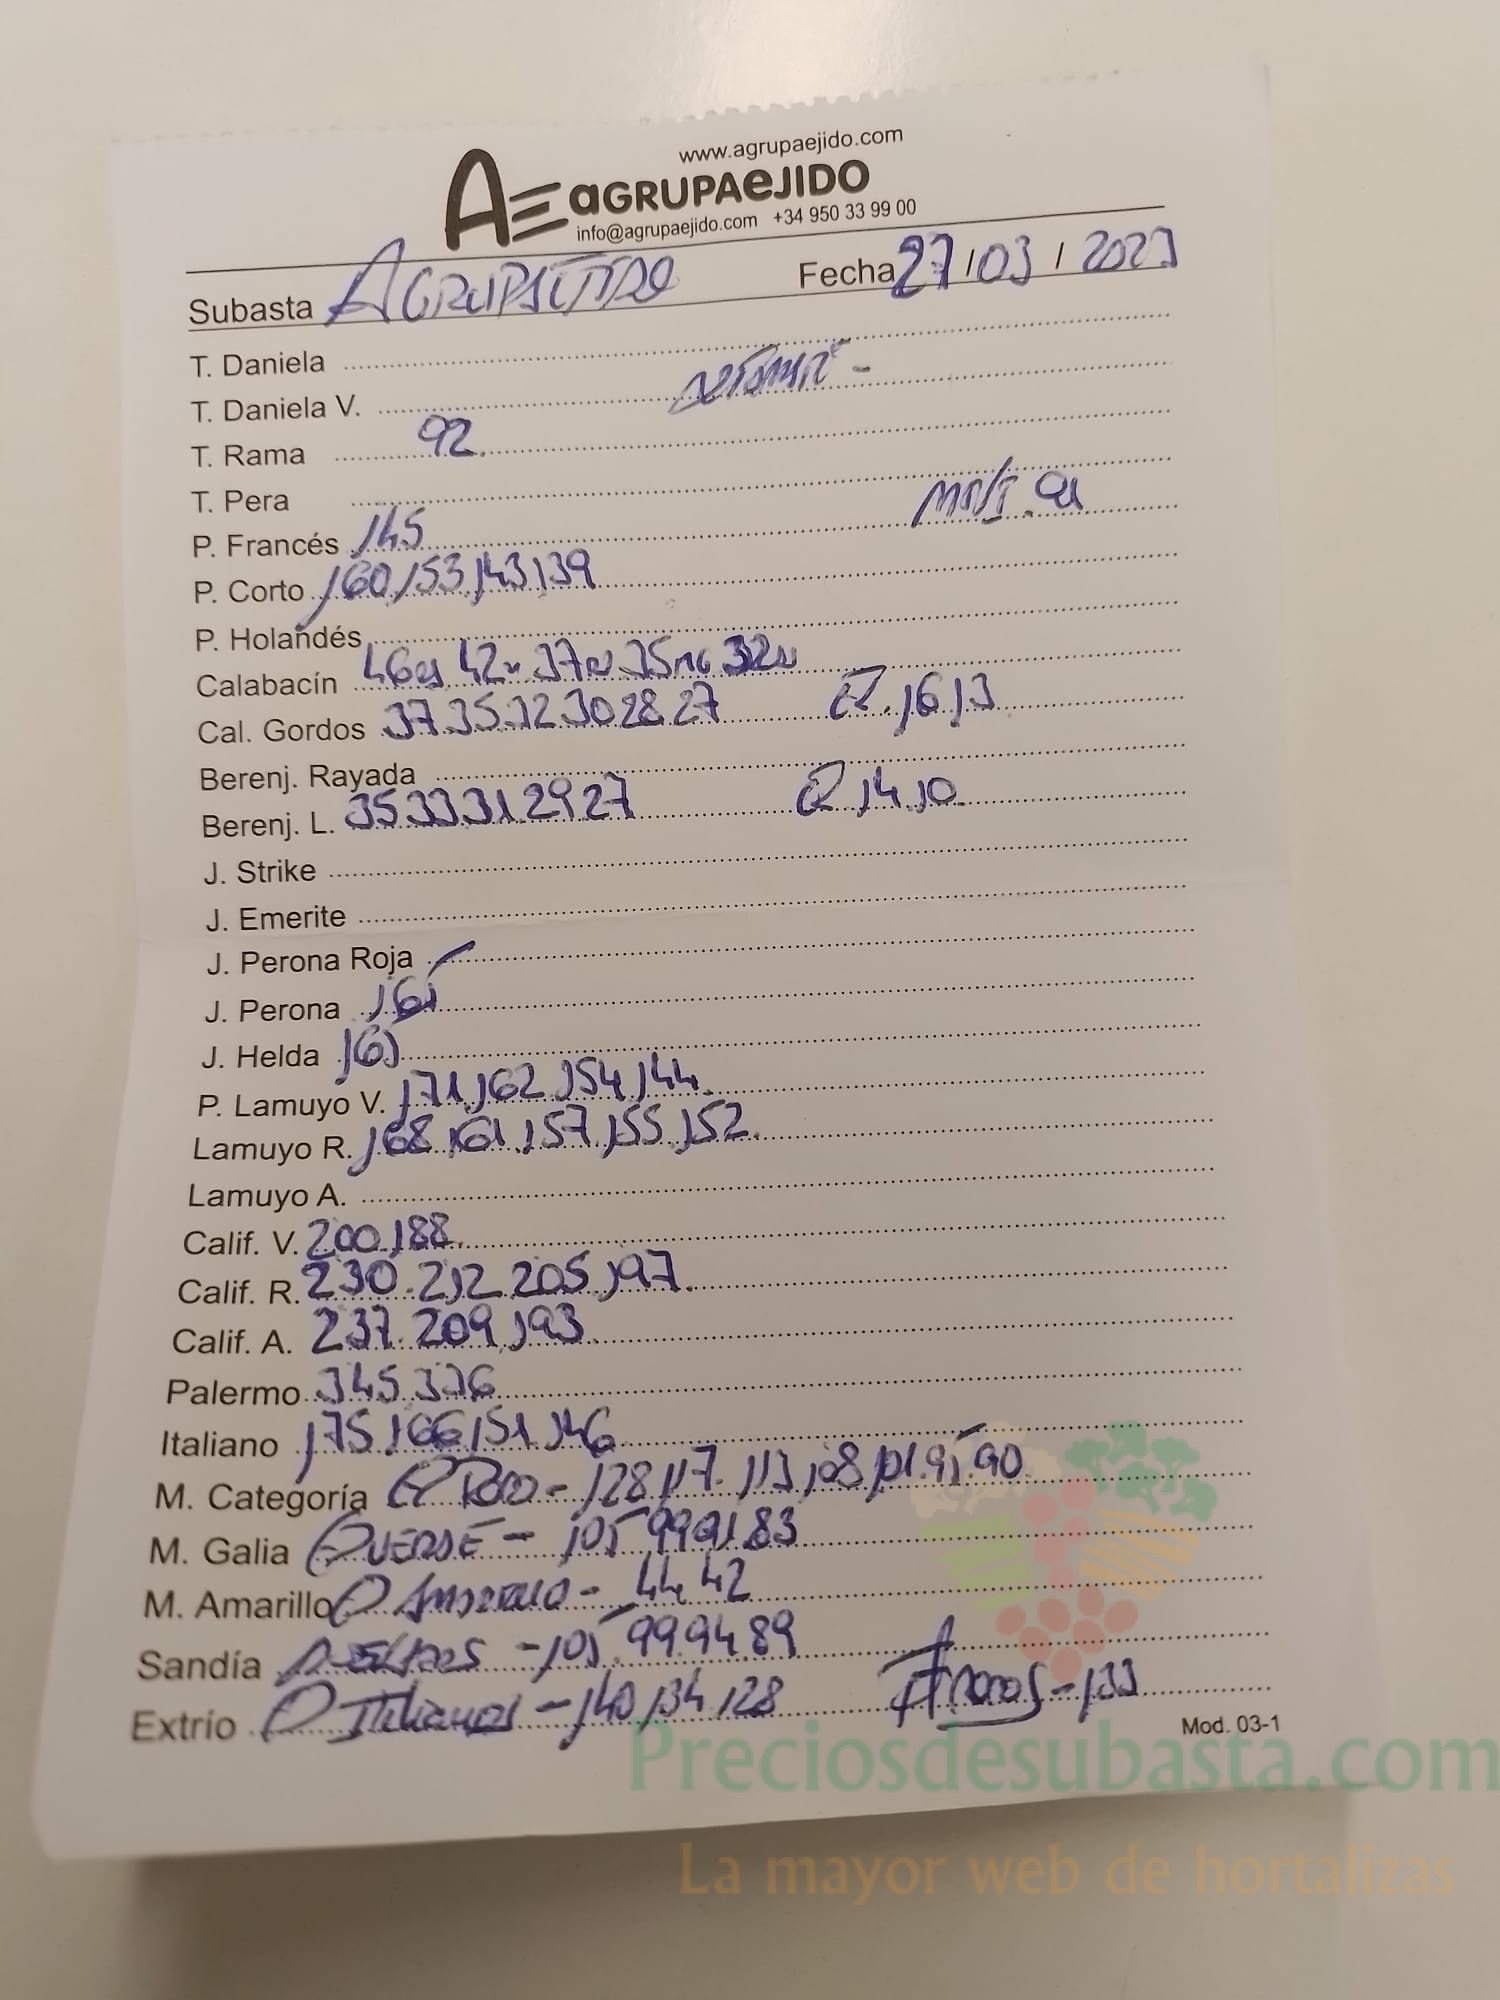 www.agrupaejido.com
AE aGRUPAeJIDO
info@agrupaejido.com +34 950 33 99 00
Subasta AGRUPAEJIDO Fecha 27/03/2023
T. Daniela
T. Daniela V.
T. Rama 92
T. Pera
P. Francés 145
P. Corto 160 153 143 139
P. Holandés
Calabacín 42 37 35 32
Cal. Gordos 37 35 32 30 28 27 16 13
Berenj. Rayada
Berenj. L. 35 33 31 29 27 14 10
J. Strike
J. Emerite
J. Perona Roja
J. Perona
J. Helda
P. Lamuyo V. 171 162 154 144
Lamuyo R. 168 161 157 155 152
Lamuyo A.
Calif. V. 200 188
Calif. R. 230 212 205 197
Calif. A. 237 209 193
Palermo 345
Italiano 175 166 151 146
M. Categoría - 128 117 113 108 101 95 90
M. Galia - 105 99 91 83
M. Amarillo - 44 42
Sandía - 105 99 94 89
Extrío - 140 134 128 - 133
Mod. 03-1
Preciosdesubasta.com
La mayor web de hortalizas